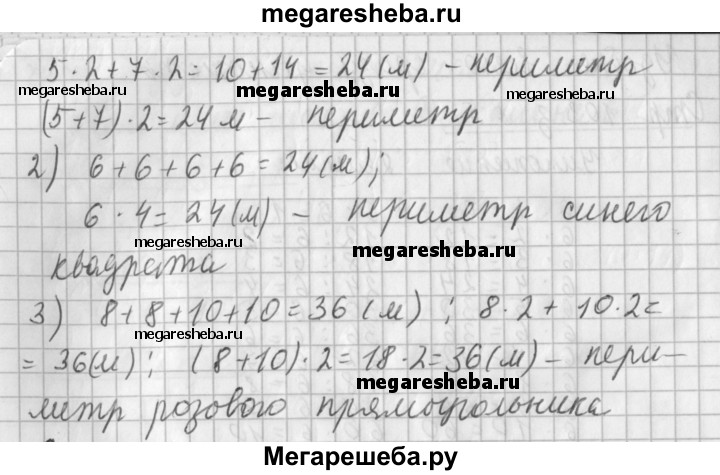 megaresheba.ru
5·2+7·2=10+14=24(м) – периметр
megaresheba.ru megaresheba.ru megaresheba.ru
(5+7)·2=24 м – периметр
2) 6+6+6+6=24(м);
6·4=24(м) – периметр синего
megaresheba.ru megaresheba.ru
квадрата
megaresheba.ru megaresheba.ru
3) 8+8+10+10=36 (м) ; 8·2+10·2=
=36(м); (8+10)·2=18·2=36(м) – пери–
megaresheba.ru
метр розового прямоугольника
Мегарешеба.ру